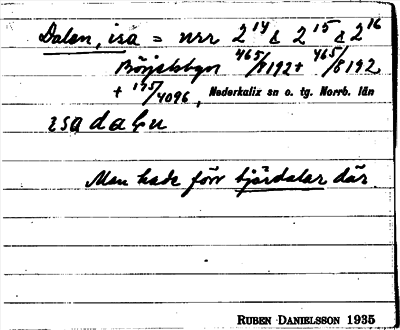 Dalen, isa = nrr 2¹⁴ & 2¹⁵ & 2¹⁶
Börjelsbyn 465/8192 + 465/8192
+ 175/4096, Nederkalix sn o. tg. Norrb. län
ısadaḷu
Man hade förr tjärdalar där.
RUBEN DANIELSSON 1935